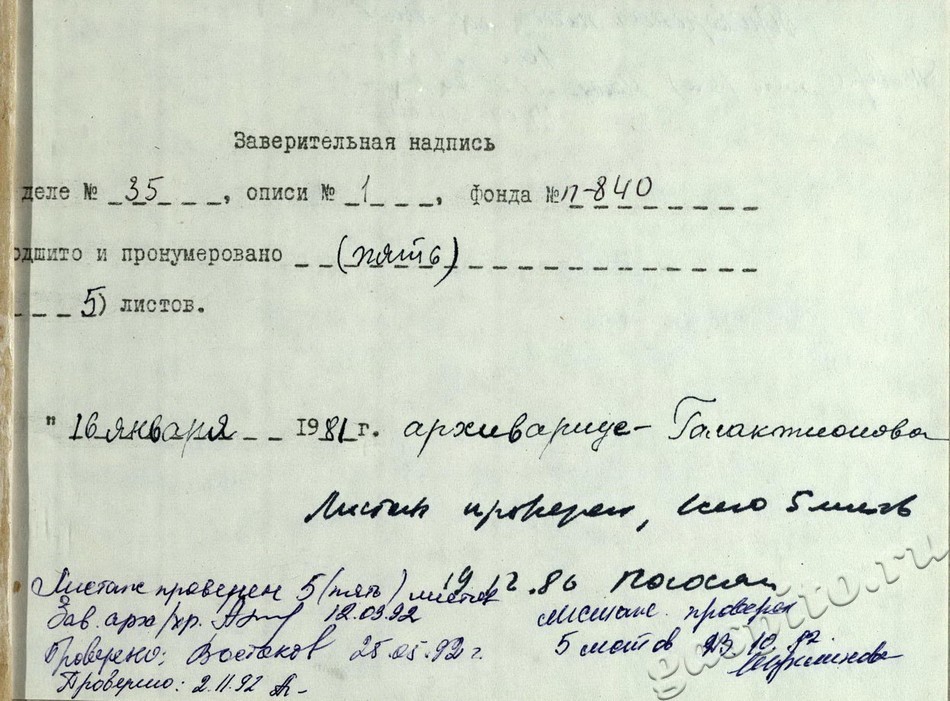 Заверительная надпись
деле № 35, описи № 1, фонда № п-840
одшито и пронумеровано (пять)
5) листов.
"16 января 1981 г. архивариус- Галактионова
Листаж проверен, 5 листов
Листаж проверен 5 (пять) листов 19 12.86
Зав. арх/хр. 12.03.92 листаж проверен
Проверено: Востоков 25.05.92 г. 5 листов 23 10 92
Проверено: 2.11.92
gasnito.ru